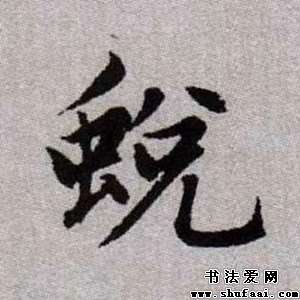 蜕
书法爱网
www.shufaai.com